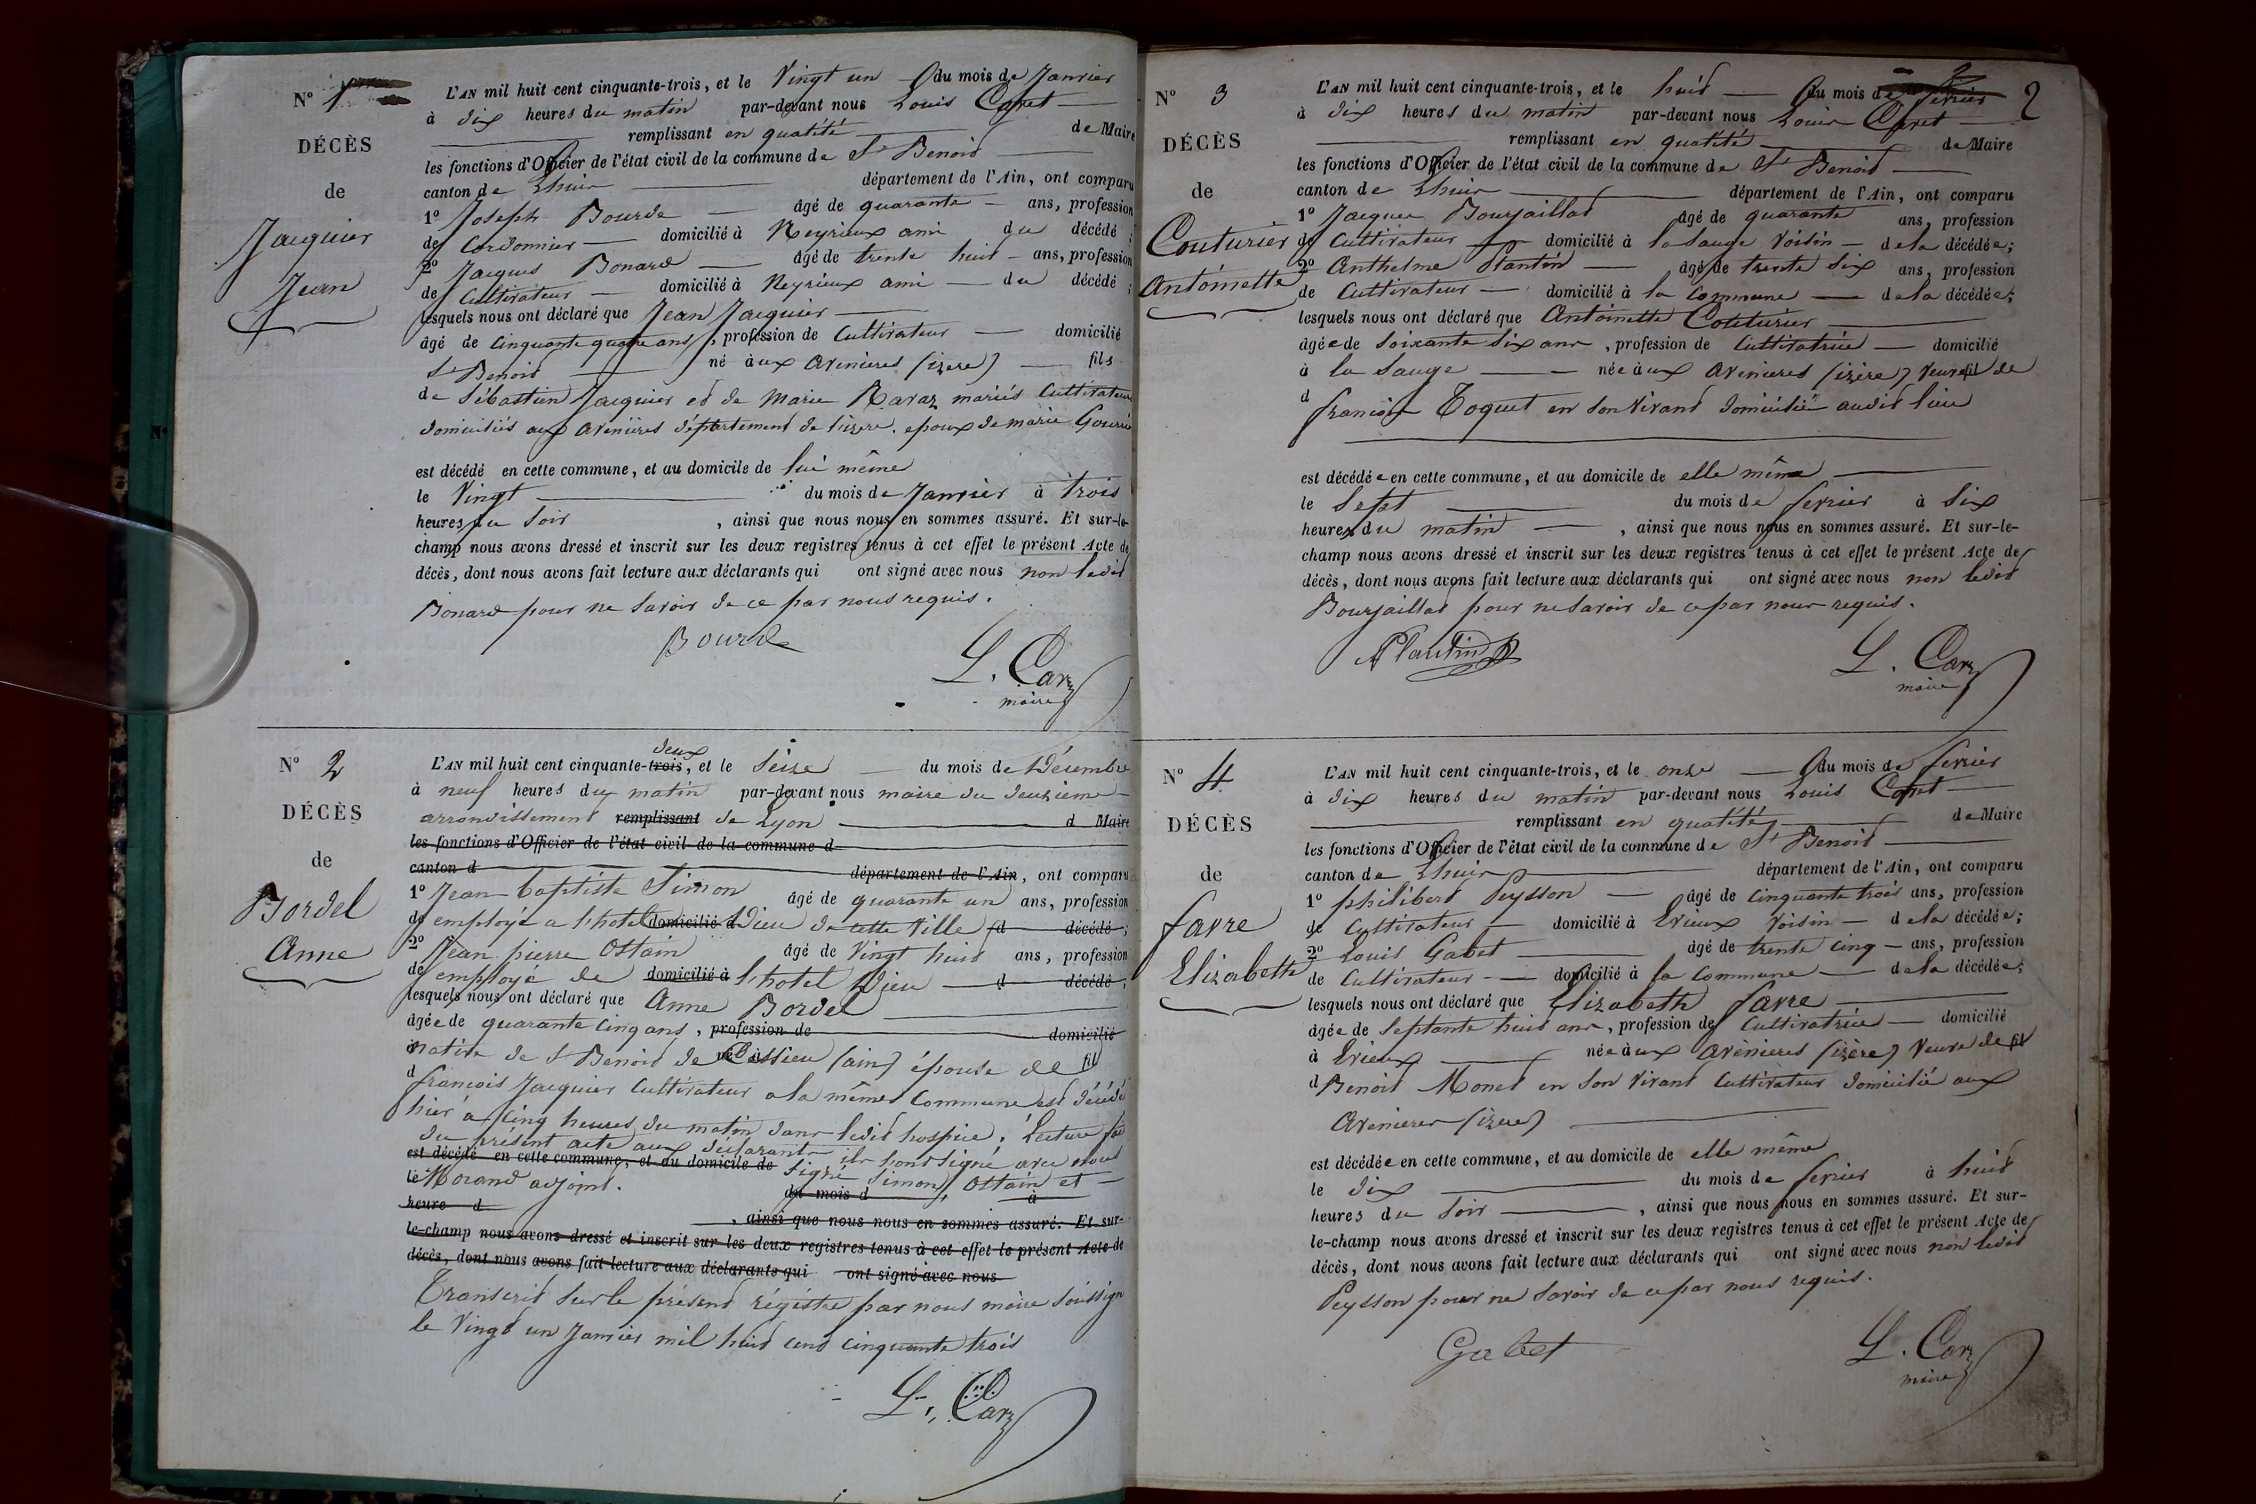 N° 1
DÉCÈS
de
Jacquier
Jean
L'AN mil huit cent cinquante-trois, et le Vingt un du mois de Janvier
à dix heures du matin par-devant nous Louis Caret
remplissant en qualité de Maire
les fonctions d'Officier de l'état civil de la commune de St Benoit
canton de Lhuis département de l'Ain, ont comparu
1° Joseph Bourde âgé de quarante ans, profession
de Cordonnier domicilié à Neyrieux ami du décédé ;
2° Jacques Bonard âgé de trente huit ans, profession
de Cultivateur domicilié à Neyrieux ami du décédé ;
lesquels nous ont déclaré que Jean Jacquier
âgé de cinquante quatre ans, profession de Cultivateur domicilié
St Benoit né aux avenieres (izere) fils
de Sébastien Jacquier et de Marie Ravaz mariés Cultivateurs
domiciliés aux avenieres département de lizere. epoux de marie
est décédé en cette commune, et au domicile de lui même
le Vingt du mois de Janvier à trois
heures du Soir , ainsi que nous nous en sommes assuré. Et sur-le-
champ nous avons dressé et inscrit sur les deux registres tenus à cet effet le présent Acte de
décès, dont nous avons fait lecture aux déclarants qui ont signé avec nous non ledit
Bonard pour ne Savoir de ce par nous requis.
Bourde
L. Car
maire
N° 2
DÉCÈS
de
Bordel
Anne
deux
L'AN mil huit cent cinquante-trois, et le Seize du mois de Décembre
à neuf heures du matin par-devant nous maire du deuxieme
arrondissement remplissant de Lyon d Maire
les fonctions d'Officier de l'état civil de la commune d
canton d département de l'Ain, ont comparu
1° Jean baptiste Simon âgé de quarante un ans, profession
de employé a lhotel domicilié à Dieu de cette Ville d décédé ;
2° Jean pierre Ostain âgé de Vingt huit ans, profession
de employé de domicilié à lhotel Dieu d décédé ;
lesquels nous ont déclaré que Anne Bordel
âgée de quarante cinq ans, profession de domicilié
à native de St Benoit de Cessieu (ain) épouse de fil
d francois Jacquier Cultivateur a la même Commune est décédé
hier a Cinq heures du matin dans ledit hospice. Lecture
du présent acte aux déclarants ils hont signé avec nous
est décédé en cette commune, et au domicile de Signé Simon, Ostain et
le Morand adjoint. du mois d à
heure d , ainsi que nous nous en sommes assuré. Et sur-
le-champ nous avons dressé et inscrit sur les deux registres tenus à cet effet le présent Acte de
décès, dont nous avons fait lecture aux déclarants qui ont signé avec nous
Transcrit Sur le présent régistre par nous maire Soussigné
le Vingt un Janvier mil huit cent cinquante trois
L. Car
2
N° 3
DÉCÈS
de
Couturier
Antoinette
L'AN mil huit cent cinquante-trois, et le huit du mois de fevrier
à dix heures du matin par-devant nous Louis Caret
remplissant en qualité de Maire
les fonctions d'Officier de l'état civil de la commune de St Benoit
canton de Lhuis département de l'Ain, ont comparu
1° Jacques Bourjaillat âgé de quarante ans, profession
de Cultivateur domicilié à la Sauge Voisin de la décédée;
2° Anthelme Plantin âgé de trente Six ans, profession
de Cultivateur domicilié à la Commune de la décédée;
lesquels nous ont déclaré que Antoinette Couturier
âgée de Soixante Six ans, profession de Cultivatrice domicilié
à la Sauge née aux avenieres (izère) Veuve fil de
d francois Toquet en Son Vivant domicilié audit lieu
est décédée en cette commune, et au domicile de elle même
le Sept du mois de fevrier à Six
heures du matin , ainsi que nous nous en sommes assuré. Et sur-le-
champ nous avons dressé et inscrit sur les deux registres tenus à cet effet le présent Acte de
décès, dont nous avons fait lecture aux déclarants qui ont signé avec nous non ledit
Bourjaillat pour ne Savoir de ce par nous requis.
Plantin
L. Car
maire
N° 4
DÉCÈS
de
favre
Elizabeth
L'AN mil huit cent cinquante-trois, et le onze du mois de fevrier
à dix heures du matin par-devant nous Louis Caret
remplissant en qualité de Maire
les fonctions d'Officier de l'état civil de la commune de St Benoit
canton de Lhuis département de l'Ain, ont comparu
1° philibert Peysson âgé de Cinquante trois ans, profession
de Cultivateur domicilié à Evieux Voisin de la décédée;
2° Louis Gabet âgé de trente cinq ans, profession
de Cultivateur domicilié à la Commune de la décédée;
lesquels nous ont déclaré que Elizabeth favre
âgée de Septante huit ans, profession de Cultivatrice domicilié
à Evieux née aux avènieres (izère) Veuve de fil
d Benoit Monet en Son Vivant Cultivateur domicilié aux
avenieres (izere)
est décédée en cette commune, et au domicile de elle même
le dix du mois de fevrier à huit
heures du Soir , ainsi que nous nous en sommes assuré. Et sur-
le-champ nous avons dressé et inscrit sur les deux registres tenus à cet effet le présent Acte de
décès, dont nous avons fait lecture aux déclarants qui ont signé avec nous non ledit
Peysson pour ne Savoir de ce par nous requis.
Gabet
L. Car
maire